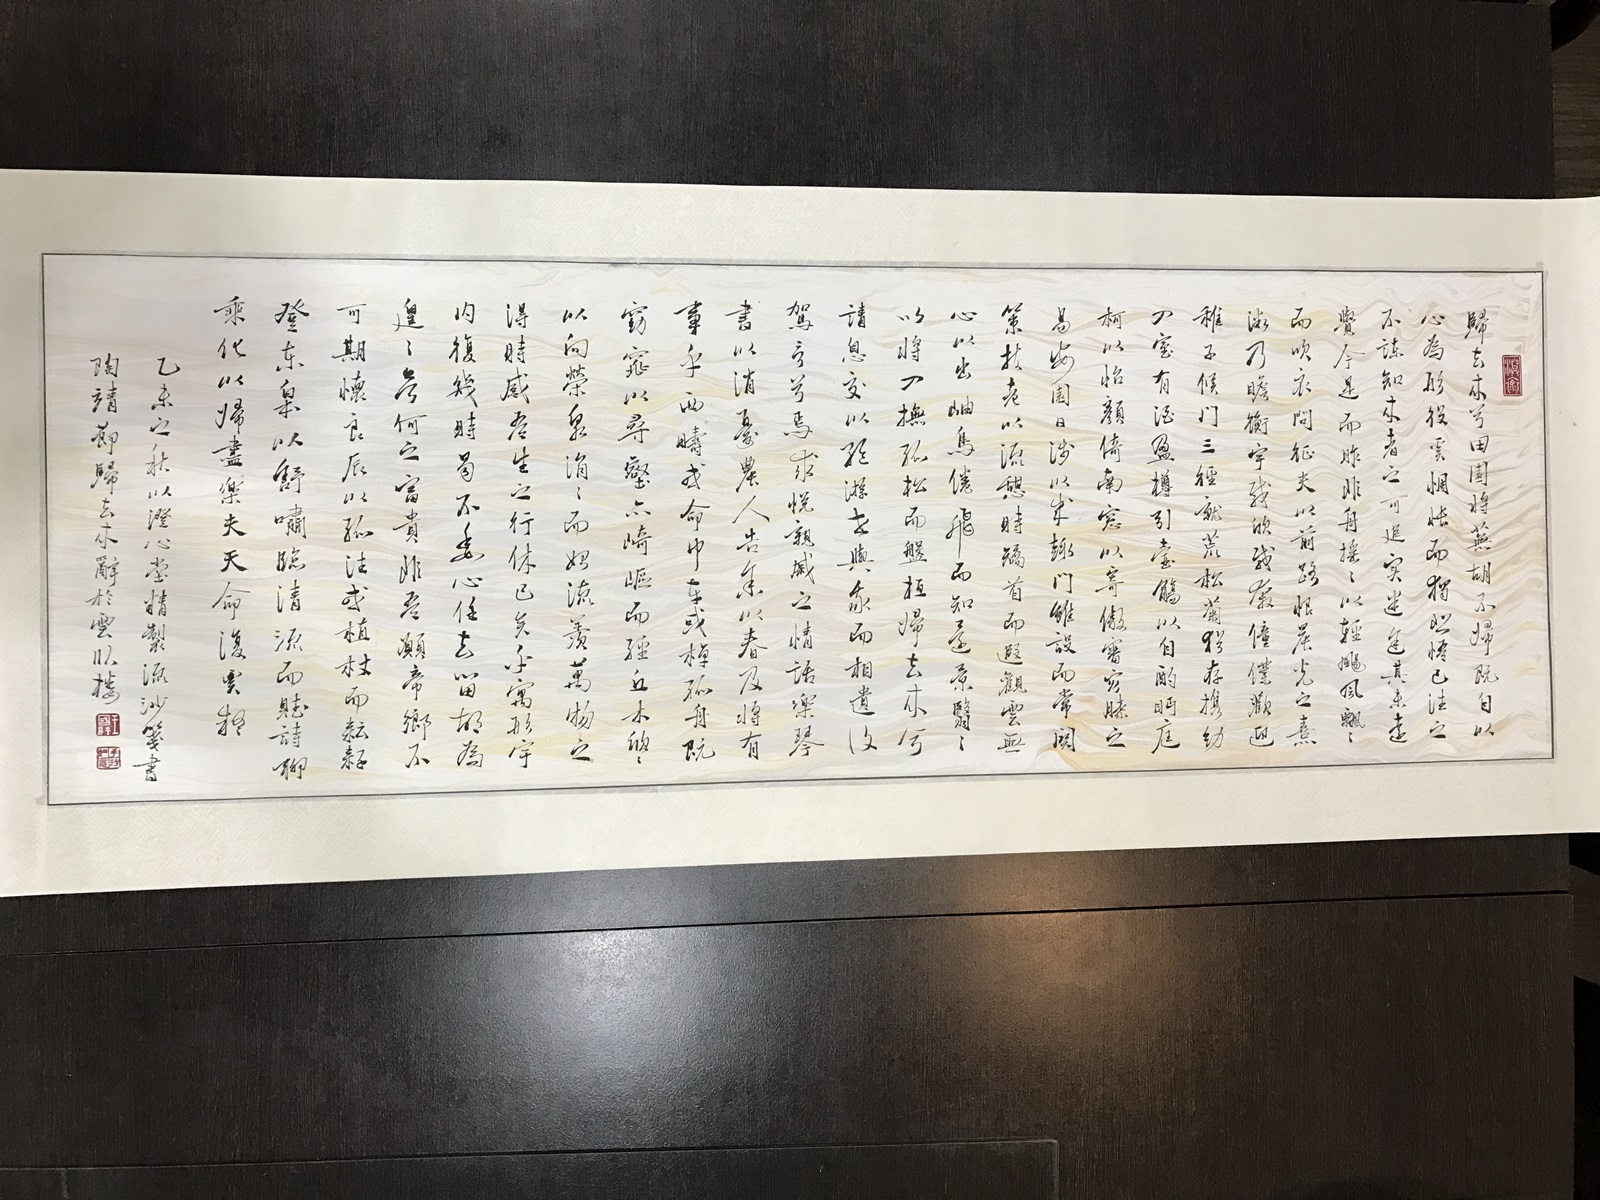 歸去來兮田園將蕪胡不歸既自以
心為形役奚惆悵而獨悲悟已往之
不諫知來者之可追實迷途其未遠
覺今是而昨非舟搖〻以輕颺風飄〻
而吹衣問征夫以前路恨晨光之熹
微乃瞻衡宇載欣載奔僮僕歡迎
稚子候門三徑就荒松菊猶存攜幼
入室有酒盈樽引壺觴以自酌眄庭
柯以怡顏倚南窗以寄傲審容膝之
易安園日涉以成趣門雖設而常關
策扶老以流憩時矯首而遐觀雲無
心以出岫鳥倦飛而知還景翳〻
以將入撫孤松而盤桓歸去來兮
請息交以絕游世與我而相遺復
駕言兮焉求悅親戚之情話樂琴
書以消憂農人告余以春及將有
事乎西疇或命巾車或棹孤舟既
窈窕以尋壑亦崎嶇而經丘木欣〻
以向榮泉涓〻而始流羨萬物之
得時感吾生之行休已矣乎寓形宇
內復幾時曷不委心任去留胡為
遑〻兮何之富貴非吾願帝鄉不
可期懷良辰以孤往或植杖而耘耔
登東皋以舒嘯臨清流而賦詩聊
乘化以歸盡樂夫天命復奚疑
乙未之秋以澄心堂精製流沙箋書
陶靖節歸去來辭於雲臥樓